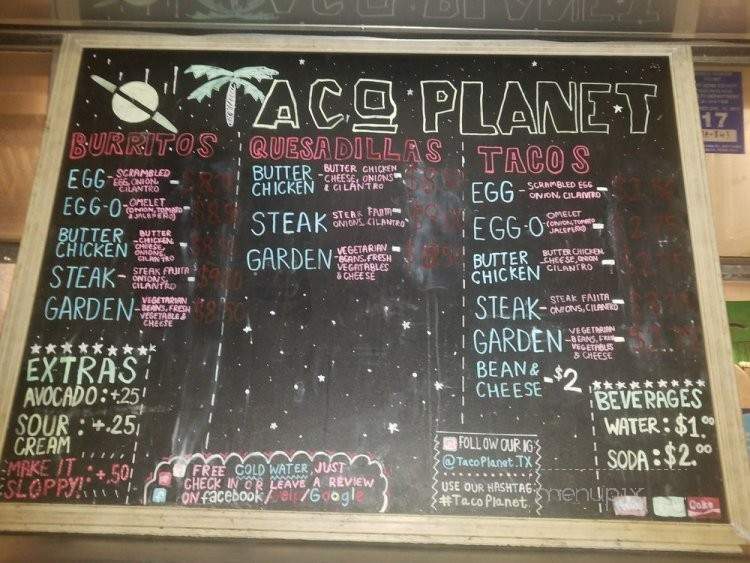 TACO PLANET
BURRITOS
EGG - SCRAMBLED
EGG, ONION,
CILANTRO
EGG-O - OMELET
(ONION, TOMATO
& JALEPEÑO)
BUTTER
CHICKEN
BUTTER
CHICKEN,
CHEESE,
ONIONS,
CILANTRO
STEAK - STEAK FAJITA
ONIONS,
CILANTRO
GARDEN - VEGETARIAN
BEANS, FRESH
VEGETABLE &
CHEESE
EXTRAS
AVOCADO: +.25
SOUR
CREAM : +.25
MAKE IT
SLOPPY! : +.50
QUESADILLAS
BUTTER
CHICKEN
- BUTTER CHICKEN
CHEESE, ONIONS
& CILANTRO
STEAK
STEAK FAJITA
ONIONS, CILANTRO
GARDEN
- VEGETARIAN
BEANS, FRESH
VEGETABLES
& CHEESE
TACOS
EGG - SCRAMBLED EGG
ONION, CILANTRO
EGG-O - OMELET
(ONION, TOMATO
JALEPEÑO)
BUTTER
CHICKEN
BUTTER CHICKEN
CHEESE, ONION
CILANTRO
STEAK - STEAK FAJITA
ONIONS, CILANTRO
GARDEN - VEGETARIAN
BEANS, FRESH
VEGETABLES
& CHEESE
BEAN &
CHEESE - $2
BEVERAGES
WATER: $1.00
SODA: $2.00
Coke
FREE COLD WATER, JUST
CHECK IN OR LEAVE A REVIEW
ON facebook/Yelp/Google
FOLLOW OUR IG
@TacoPlanet.TX
USE OUR HASHTAG
#TacoPlanet
menupix
17